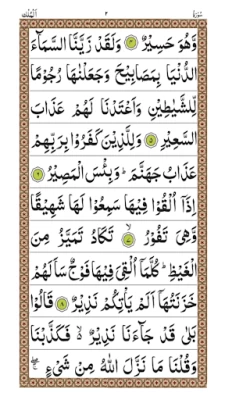 سُوْرَةُ ٢ اَلْمُلْك
وَّهُوَ حَسِيْرٌ ﴿۴﴾ وَلَقَدْ زَيَّنَّا السَّمَآءَ
الدُّنْيَا بِمَصَابِيْحَ وَجَعَلْنٰهَا رُجُوْمًا
لِّلشَّيٰطِيْنِ وَاَعْتَدْنَا لَهُمْ عَذَابَ
السَّعِيْرِ ﴿۵﴾ وَلِلَّذِيْنَ كَفَرُوْا بِرَبِّهِمْ
عَذَابُ جَهَنَّمَ ؕ وَبِئْسَ الْمَصِيْرُ ﴿۶﴾
اِذَاۤ اُلْقُوْا فِيْهَا سَمِعُوْا لَهَا شَهِيْقًا
وَّهِىَ تَفُوْرُ ﴿۷﴾ تَكَادُ تَمَيَّزُ مِنَ
الْغَيْظِ ؕ كُلَّمَاۤ اُلْقِىَ فِيْهَا فَوْجٌ سَاَلَهُمْ
خَزَنَتُهَاۤ اَلَمْ يَاْتِكُمْ نَذِيْرٌ ﴿۸﴾ قَالُوْا
بَلٰى قَدْ جَآءَنَا نَذِيْرٌ ۙ فَكَذَّبْنَا
وَقُلْنَا مَا نَزَّلَ اللّٰهُ مِنْ شَىْءٍ ۖ